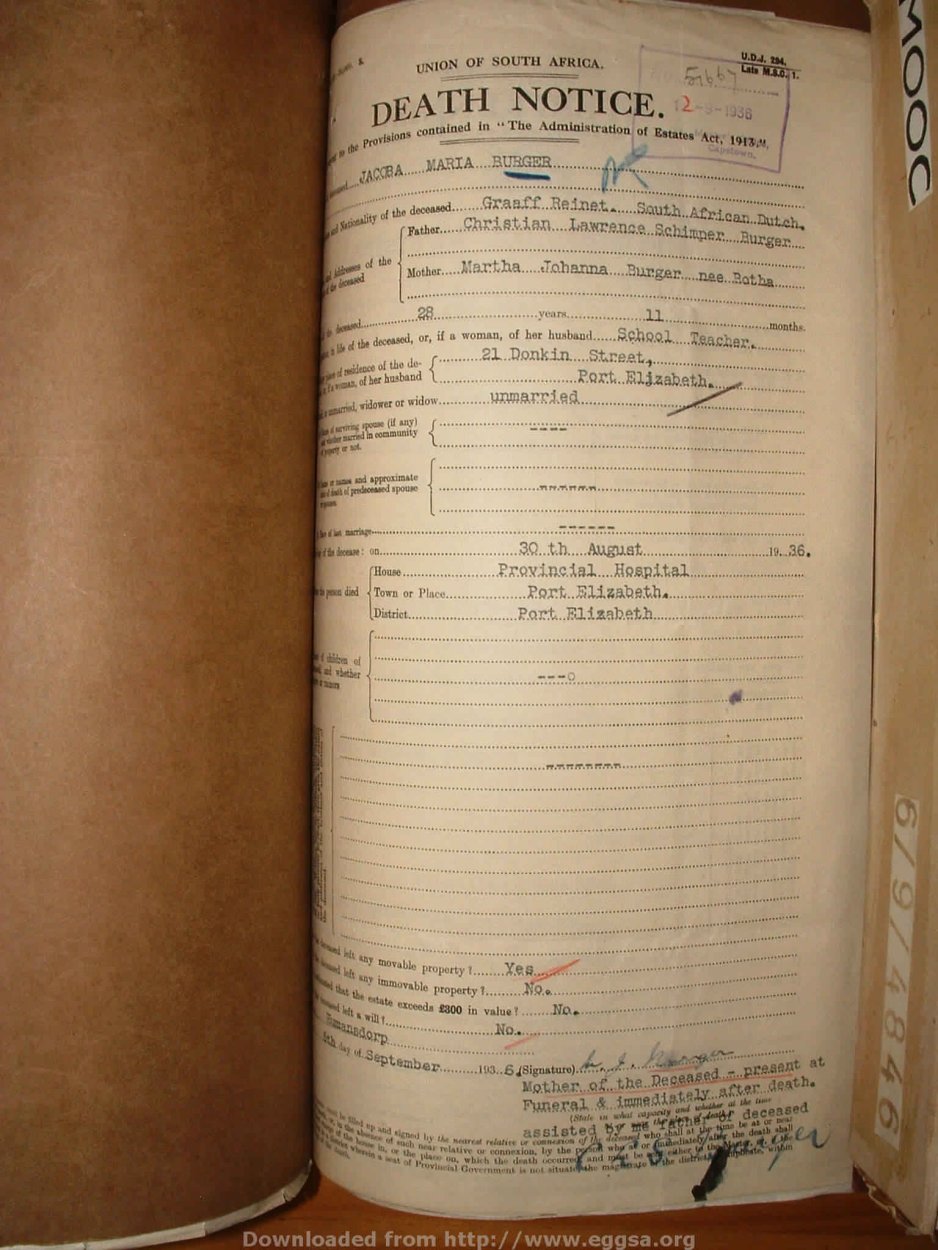 UNION OF SOUTH AFRICA.
U.D.J. 294.
Late M.S.C. 1.
51667
DEATH NOTICE.
2-9-1936
Capetown.
to the Provisions contained in "The Administration of Estates Act, 1913
JACOBA MARIA BURGER
Nationality of the deceased Graaff Reinet. South African Dutch.
Father Christian Lawrence Schimper Burger
Addresses of the
of the deceased
Mother Martha Johanna Burger nee Botha
the deceased 28 years 11 months.
in life of the deceased, or, if a woman, of her husband School Teacher.
place of residence of the de-
if a woman, of her husband
21 Donkin Street,
Port Elizabeth.
unmarried, widower or widow unmarried
of surviving spouse (if any)
whether married in community
of property or not.
----
or names and approximate
of death of predeceased spouse
------
of last marriage ------
of the decease: on 30 th August 19 36.
the person died
House Provincial Hospital
Town or Place Port Elizabeth.
District Port Elizabeth
of children of
and whether
or minors
---O
--------
deceased left any movable property? Yes
deceased left any immovable property? No.
that the estate exceeds £300 in value? No.
left a will? No.
Humansdorp
day of September 193 6 (Signature)
Mother of the Deceased - present at
Funeral & immediately after death.
(State in what capacity and whether at the time
assisted by me Father of deceased
filled up and signed by the nearest relative or connexion of the deceased who shall at the time be at or near
in the absence of such near relative or connexion, by the person who at or immediately after the death shall
the house in, or the place on, which the death occurred and must be
wherein a seat of Provincial Government is not situate the magistrate of the district within
MOOC
6/9/4846
Downloaded from http://www.eggsa.org